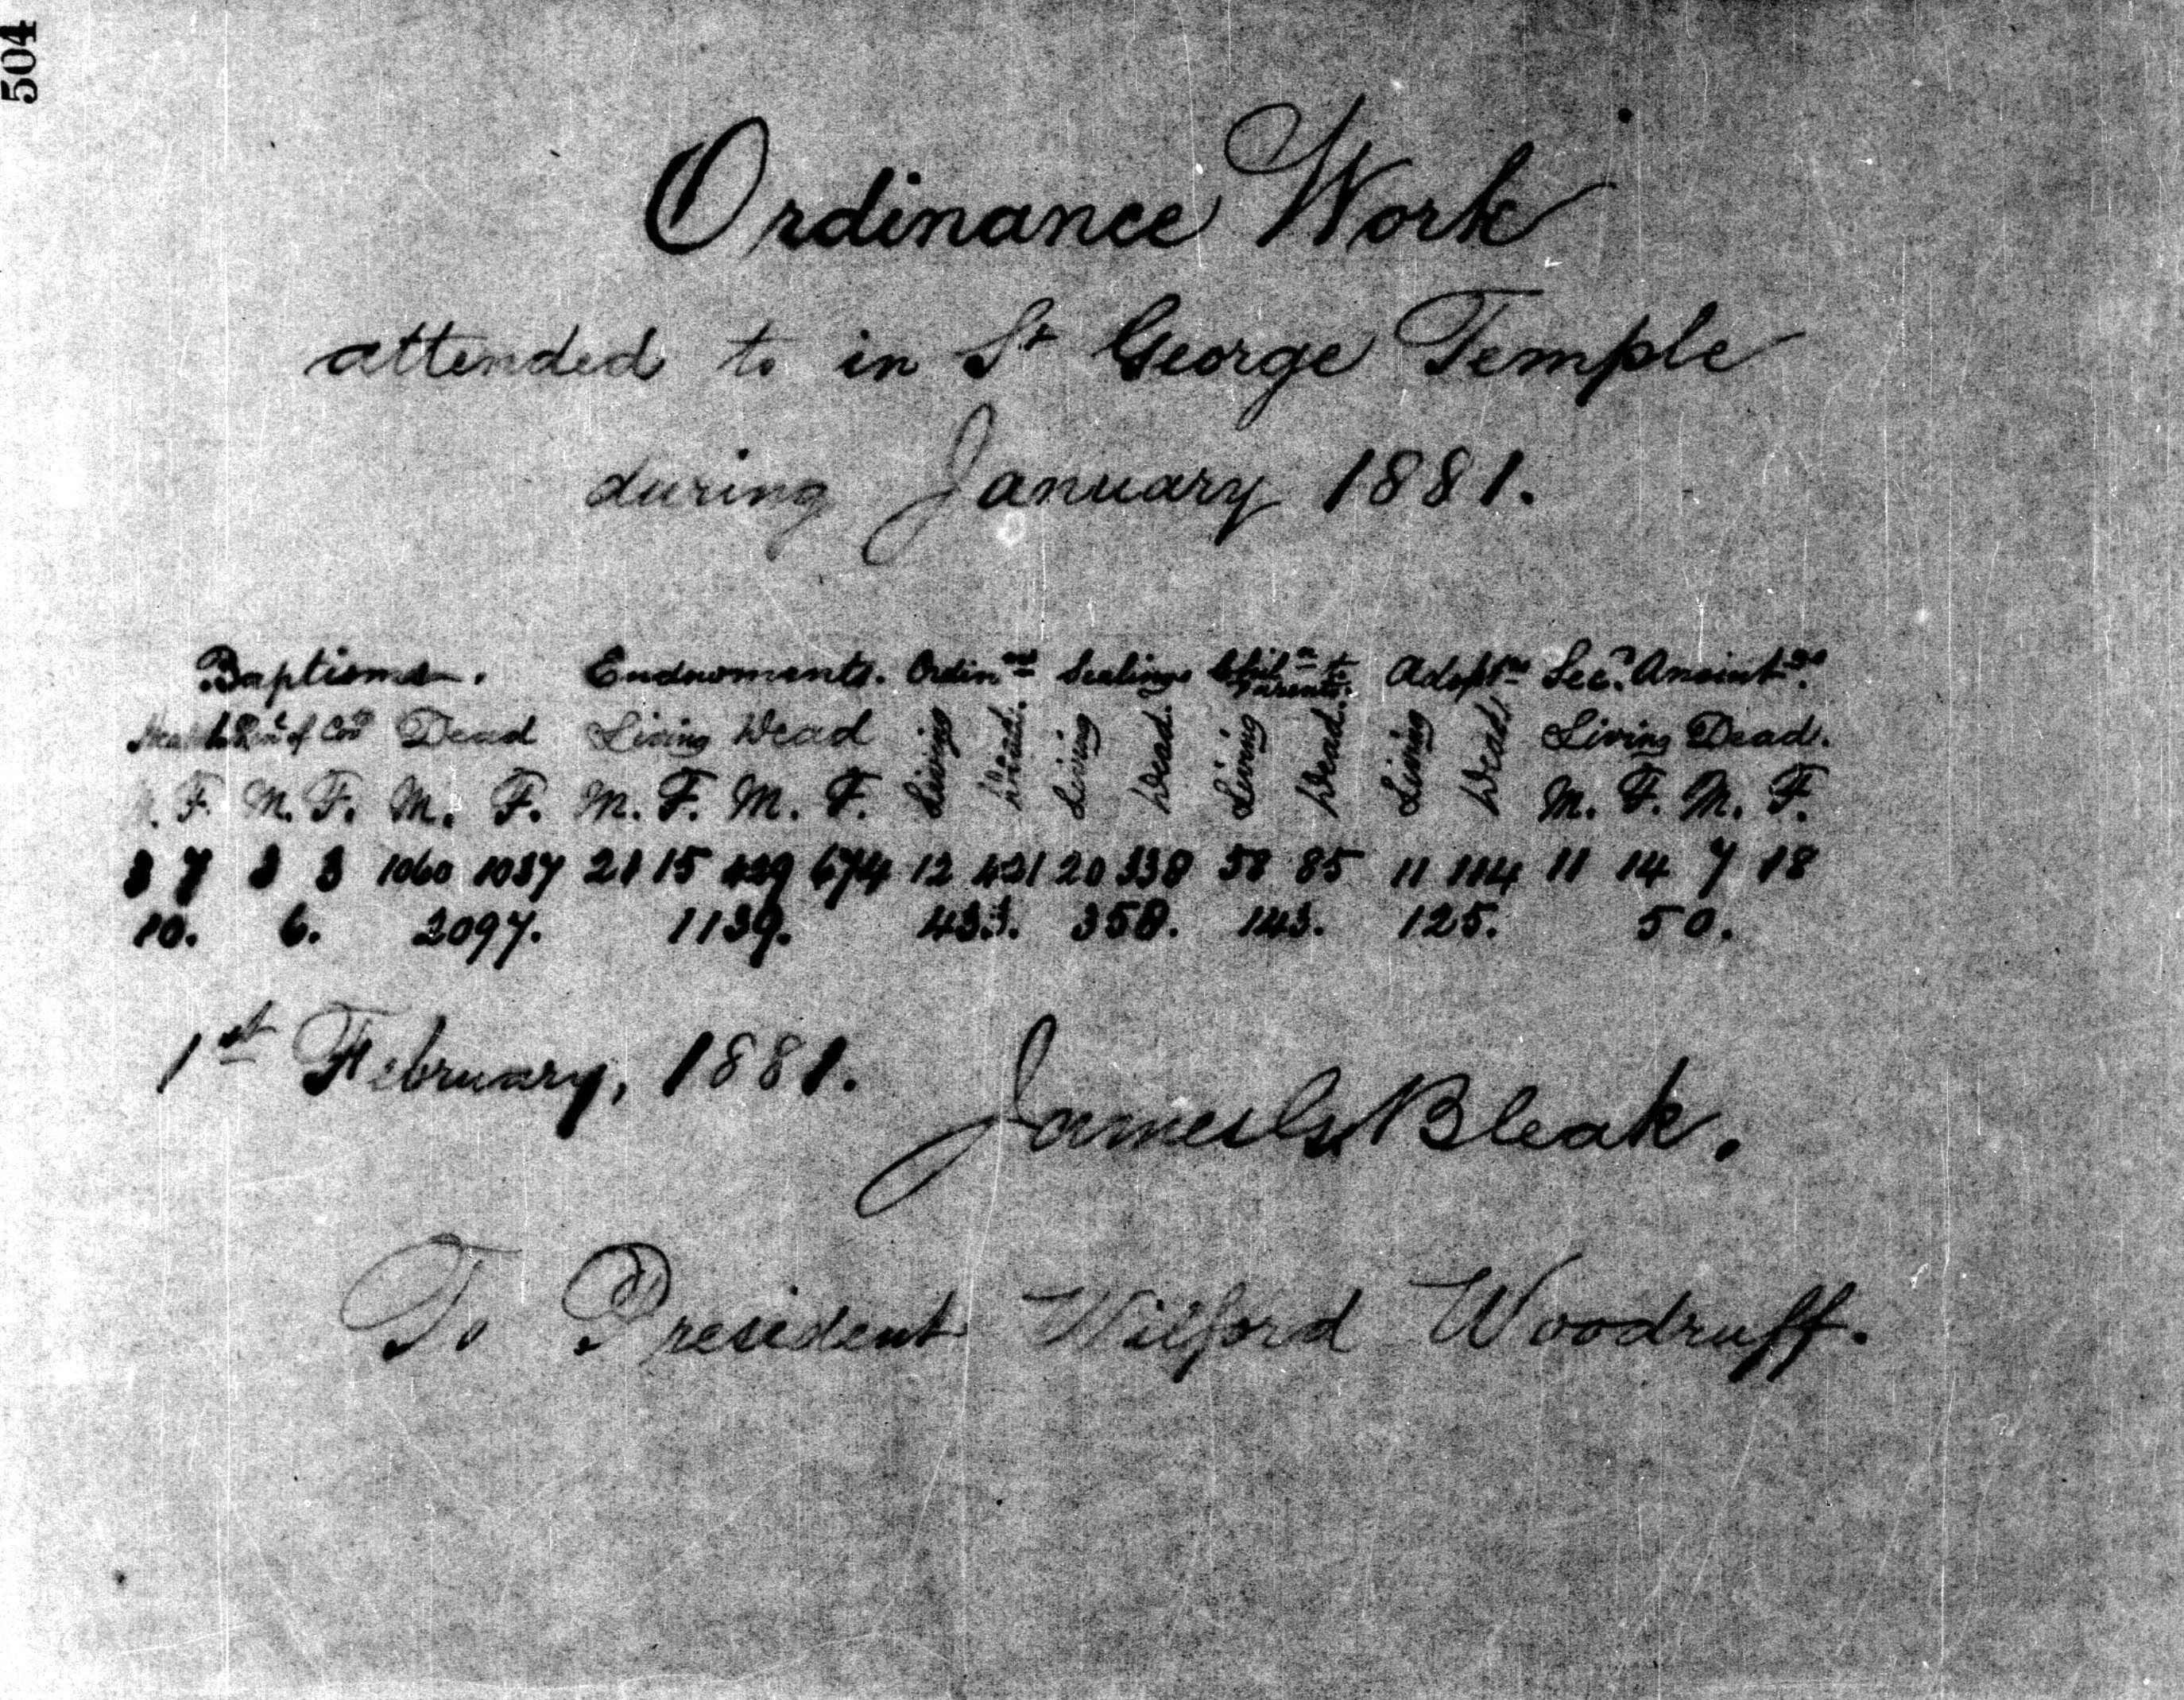 504
Ordinance Work
attended to in St George Temple
during January 1881.
Baptisms. Endowments. Ordinns Sealings Childn to Parents. Adoptns Secd Anointgs.
Health Ren'l of Cov'ts Dead Living Dead Living Dead. Living Dead. Living Dead. Living Dead Living Dead.
M. F. M. F. M. F. M. F. M. F. M. F. M. F.
3 7 3 3 1060 1037 21 15 429 674 12 421 20 338 58 85 11 114 11 14 7 18
10. 6. 2097. 1139. 433. 358. 143. 125. 50.
1st February, 1881.
James G Bleak.
To President Wilford Woodruff.